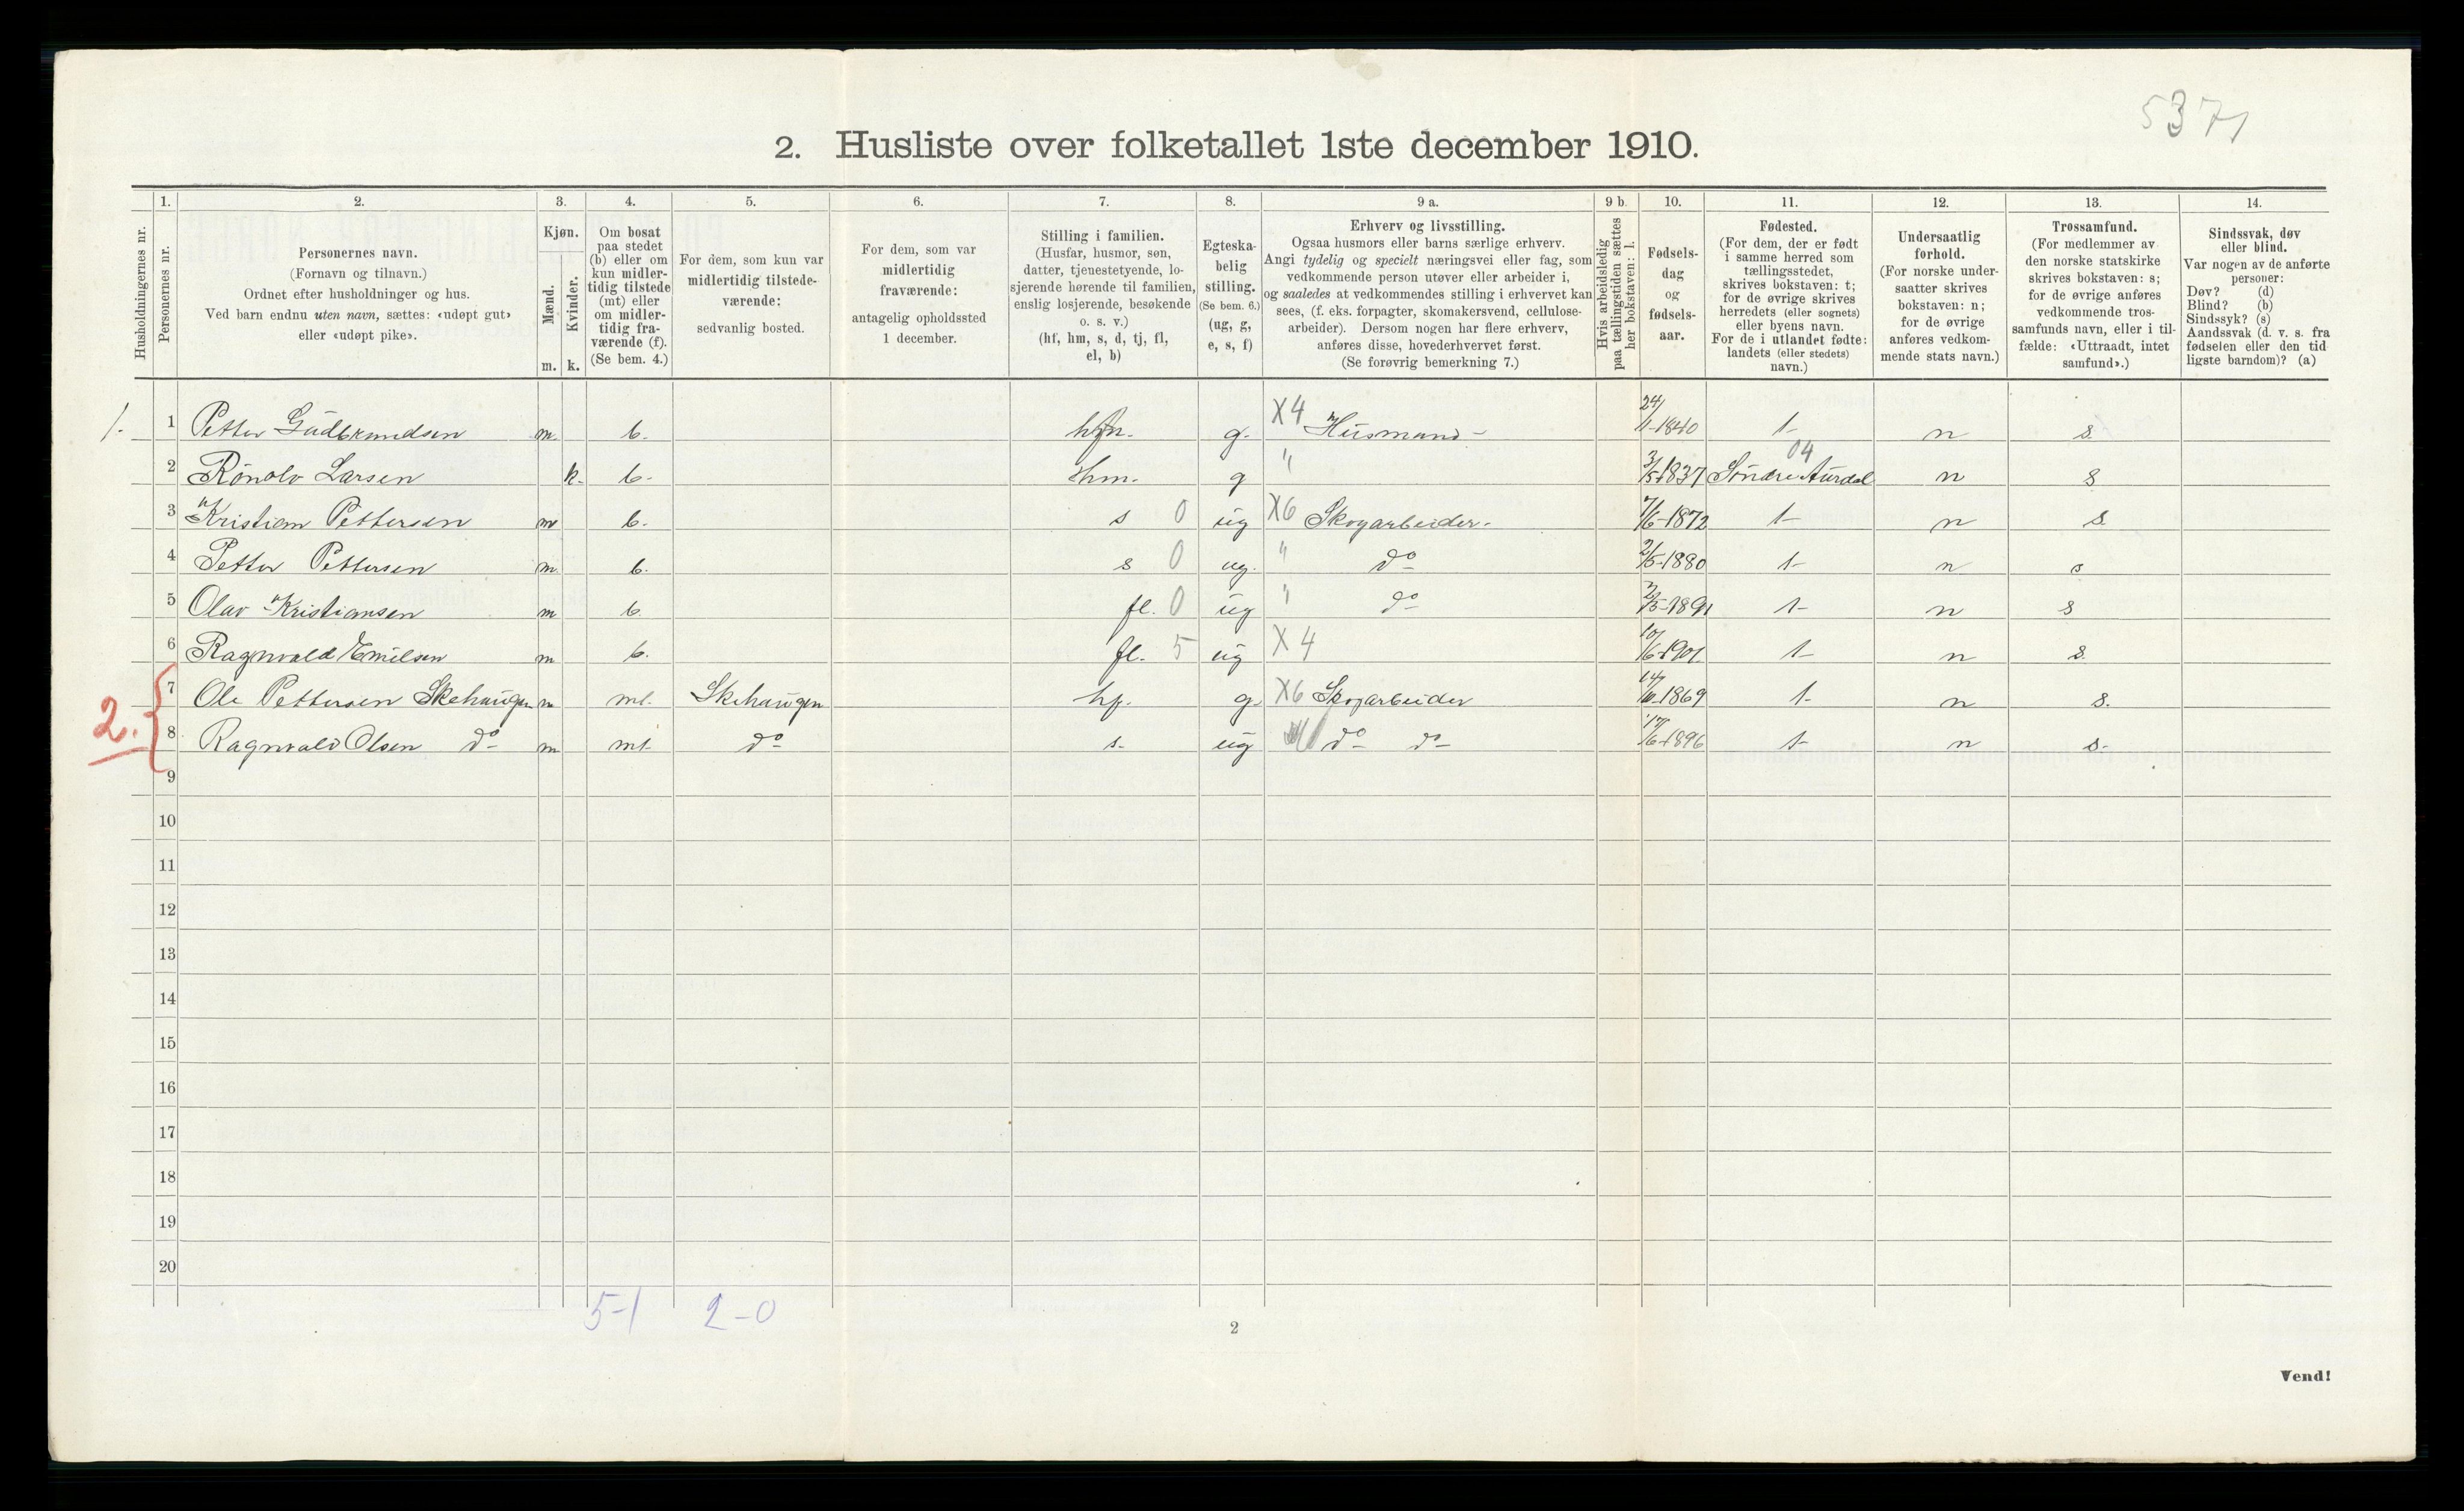 5371
2. Husliste over folketallet 1ste december 1910.
Husholdningernes nr.
1.
Personernes nr.
2.
Personernes navn.
(Fornavn og tilnavn.)
Ordnet efter husholdninger og hus.
Ved barn endnu uten navn, sættes: «udøpt gut»
eller «udøpt pike».
3.
Kjøn.
Mænd.
m.
Kvinder.
k.
4.
Om bosat
paa stedet
(b) eller om
kun midler-
tidig tilstede
(mt) eller
om midler-
tidig fra-
værende (f).
(Se bem. 4.)
5.
For dem, som kun var
midlertidig tilstede-
værende:
sedvanlig bosted.
6.
For dem, som var
midlertidig
fraværende:
antagelig opholdssted
1 december.
7.
Stilling i familien.
(Husfar, husmor, søn,
datter, tjenestetyende, lo-
sjerende hørende til familien,
enslig losjerende, besøkende
o. s. v.)
(hf, hm, s, d, tj, fl,
el, b)
8.
Egteska-
belig
stilling.
(Se bem. 6.)
(ug, g,
e, s, f)
9 a.
Erhverv og livsstilling.
Ogsaa husmors eller barns særlige erhverv.
Angi tydelig og specielt næringsvei eller fag, som
vedkommende person utøver eller arbeider i,
og saaledes at vedkommendes stilling i erhvervet kan
sees, (f. eks. forpagter, skomakersvend, cellulose-
arbeider). Dersom nogen har flere erhverv,
anføres disse, hovederhvervet først.
(Se forøvrig bemerkning 7.)
9 b.
Hvis arbeidsledig
paa tællingstiden sættes
her bokstaven: l.
10.
Fødsels-
dag
og
fødsels-
aar.
11.
Fødested.
(For dem, der er født
i samme herred som
tællingsstedet,
skrives bokstaven: t;
for de øvrige skrives
herredets (eller sognets)
eller byens navn.
For de i utlandet fødte:
landets (eller stedets)
navn.)
12.
Undersaatlig
forhold.
(For norske under-
saatter skrives
bokstaven: n;
for de øvrige
anføres vedkom-
mende stats navn.)
13.
Trossamfund.
(For medlemmer av
den norske statskirke
skrives bokstaven: s;
for de øvrige anføres
vedkommende tros-
samfunds navn, eller i til-
fælde: «Uttraadt, intet
samfund».)
14.
Sindssvak, døv
eller blind.
Var nogen av de anførte
personer:
Døv? (d)
Blind? (b)
Sindssyk? (s)
Aandssvak (d. v. s. fra
fødselen eller den tid
ligste barndom)? (a)
1. 1 Petter Gudbrandsen m. b. g. X4 Husmand - 24/1-1840 t n s.
2 Rönolv Larsen k. b. hm. g " 1837 Söndre Aurdal 04 n s
3 Kristian Pettersen m b. s 0 ug X6 Skogarbeider. 7/6-1872 t n s.
4 Petter Pettersen m. b. s 0 ug. " do 2/5-1880 t n s
5 Olav Kristiansen m b. fl. 0 ug " do t n s
6 Ragnvald Emilsen m b. fl. 5 ug X 4 10/6-1901 t n s.
2. 7 Ole Pettersen Skehaugen m mt. Skehaugen hf. g. X6 Skogarbeider 1869 t n s.
8 Ragnvald Olsen do m mt do s. ug do do 17/6-1896 t n s.
9
10
11
12
13
14
15
16
17
18
19
20
5-1 2-0
2
Vend!